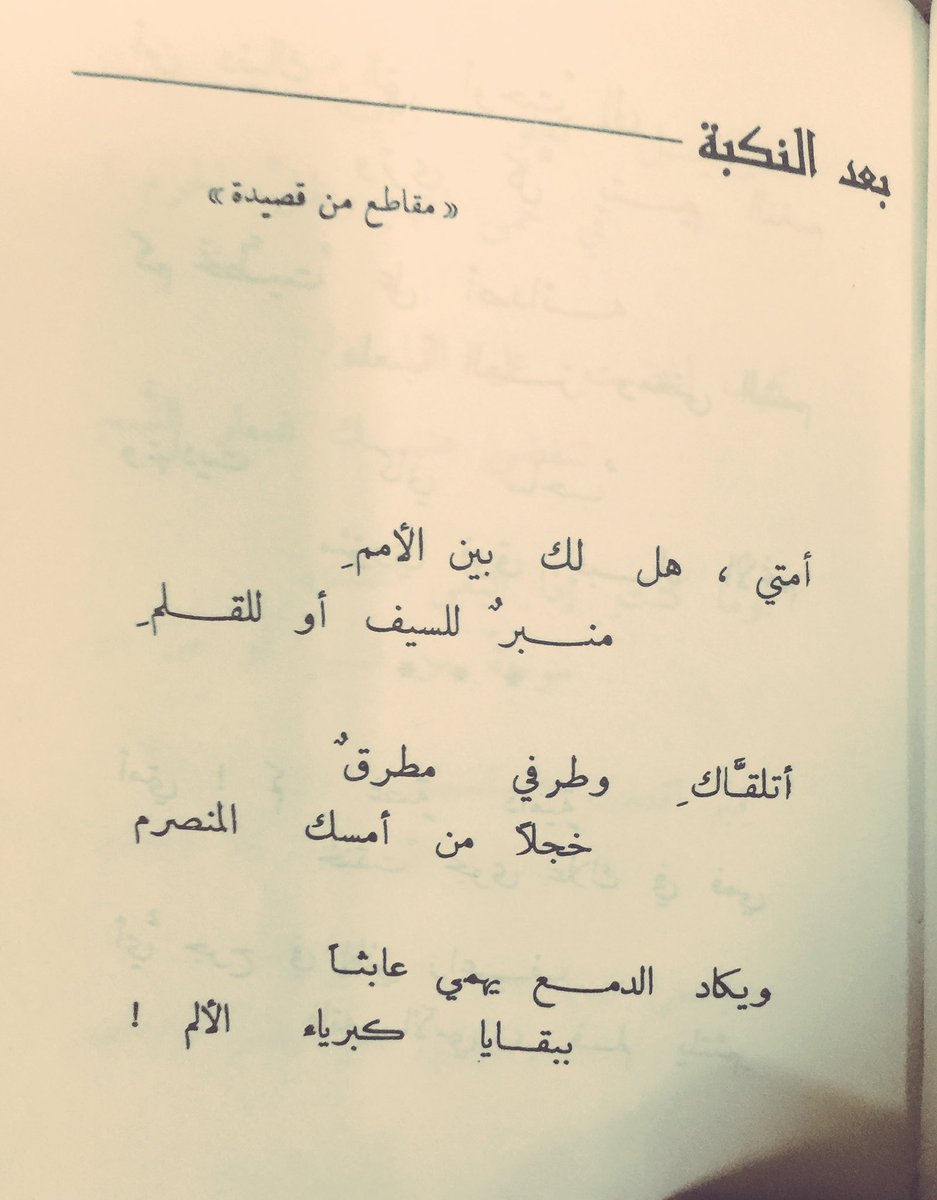 بعد النكبة
« مقاطع من قصيدة »
أمتي ، هل لك بين الأممِ
منـبرٌ للسيف أو للقـلمِ
أتلقَّاكِ وطرفي مطرقٌ
خجلاً من أمسك المنصرم
ويكاد الدمـع يهمي عابثاً
ببقـايا كبرياء الألم !